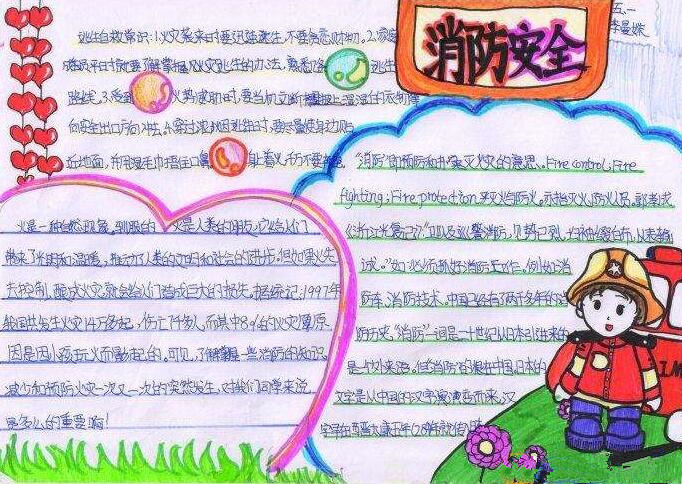 消防安全
五、一
李曼姝
逃生自救常识:1.火灾袭来时要迅速逃生,不要贪恋财物。2.家庭
成员平时就要了解掌握火灾逃生的办法,熟悉 逃生
路线。3.受到 火势威胁时,要当机立断 披上湿湿 的衣物
向安全出口方向冲去。4.穿过浓烟逃生时,要尽量使身边贴
近地面,并用湿毛巾捂住口鼻 身上着火,千万不要
火是一种自然现象,驯服的 火是人类的朋友,它给人们
带来了光明和温暖,推动了人类的文明和社会的进步。但如果火失
去控制,酿成火灾,就会给人们造成巨大的损失。据统计:1997年
我国共发生火灾14万多起,伤亡 而其中8% 的火灾
因是因小孩玩火而引起的。可见,了解掌握一些消防的知识,
减少和预防火灾一次又一次的突然发生,对我们同学来说
是多么的重要啊!
“消防”即预防和扑灭火灾的意思。Fire control; Fire
fighting; Fire protection 灭火与防火。亦指灭火、防火人员。郭孝成
《浙江光复记》
诚。”如:必须抓好消防工作,例如消
防车、消防技术。中国已经有了两千多年的消
防历史,“消防”一词是二十世纪从日本引进来的
是个外来语,但消防的根在中国,日本的
文字是从中国的汉字演变而来,汉
字早在西晋太康五年